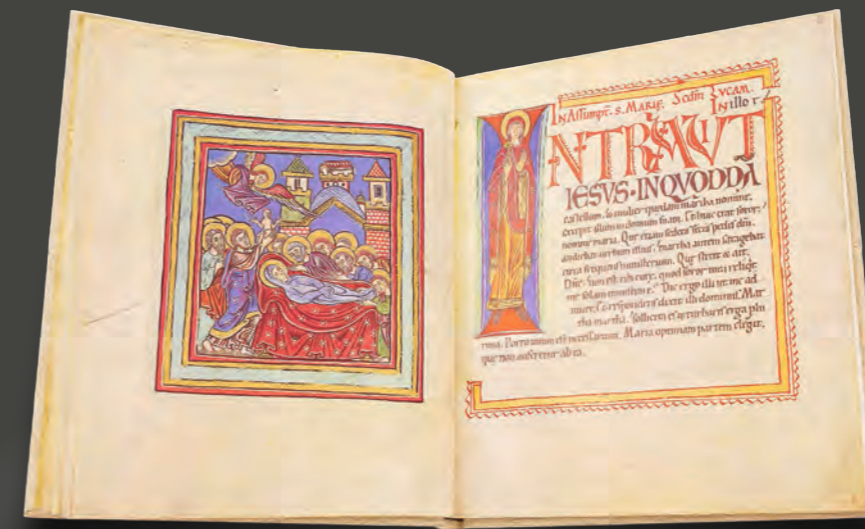 IN Assumpt. S. MARIĘ. Secdm Lucam.
IN illo t.
INTRAVIT
IESVS·INQVODDĀ
castellum, & mulier quędam martha nomine,
excepit illum in domum suam. Et huic erat soror
nomine maria. Quę etiam sedens secus pedes dni,
audiebat verbum illius. Martha autem satagebat
circa frequens ministerium. Quę stetit & ait.
Dne. non est tibi curę, quod soror mea reliqt
me solam ministrare? Dic ergo illi ut me ad
iuvet. Et respondens dixit illi dominus. Mar
tha martha. sollicita es & turbaris erga plu
rima. Porro unum est necessarium. Maria optimam partem elegit,
quę non auferetur ab ea.